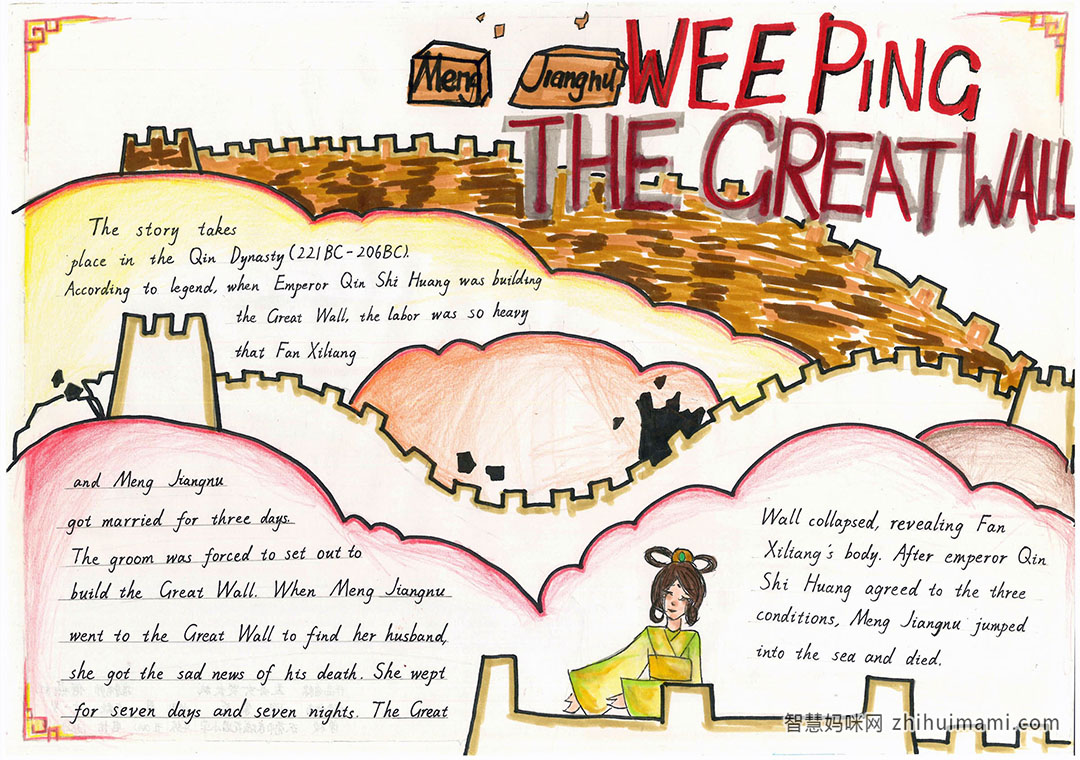 Meng Jiangnu WEEPING
THE GREAT WALL
The story takes
place in the Qin Dynasty (221BC-206BC).
According to legend, when Emperor Qin Shi Huang was building
the Great Wall, the labor was so heavy
that Fan Xiliang
and Meng Jiangnu
got married for three days.
The groom was forced to set out to
build the Great Wall. When Meng Jiangnu
went to the Great Wall to find her husband,
she got the sad news of his death. She wept
for seven days and seven nights. The Great
Wall collapsed, revealing Fan
Xiliang's body. After emperor Qin
Shi Huang agreed to the three
conditions, Meng Jiangnu jumped
into the sea and died.
智慧妈咪网 zhihuimami.com